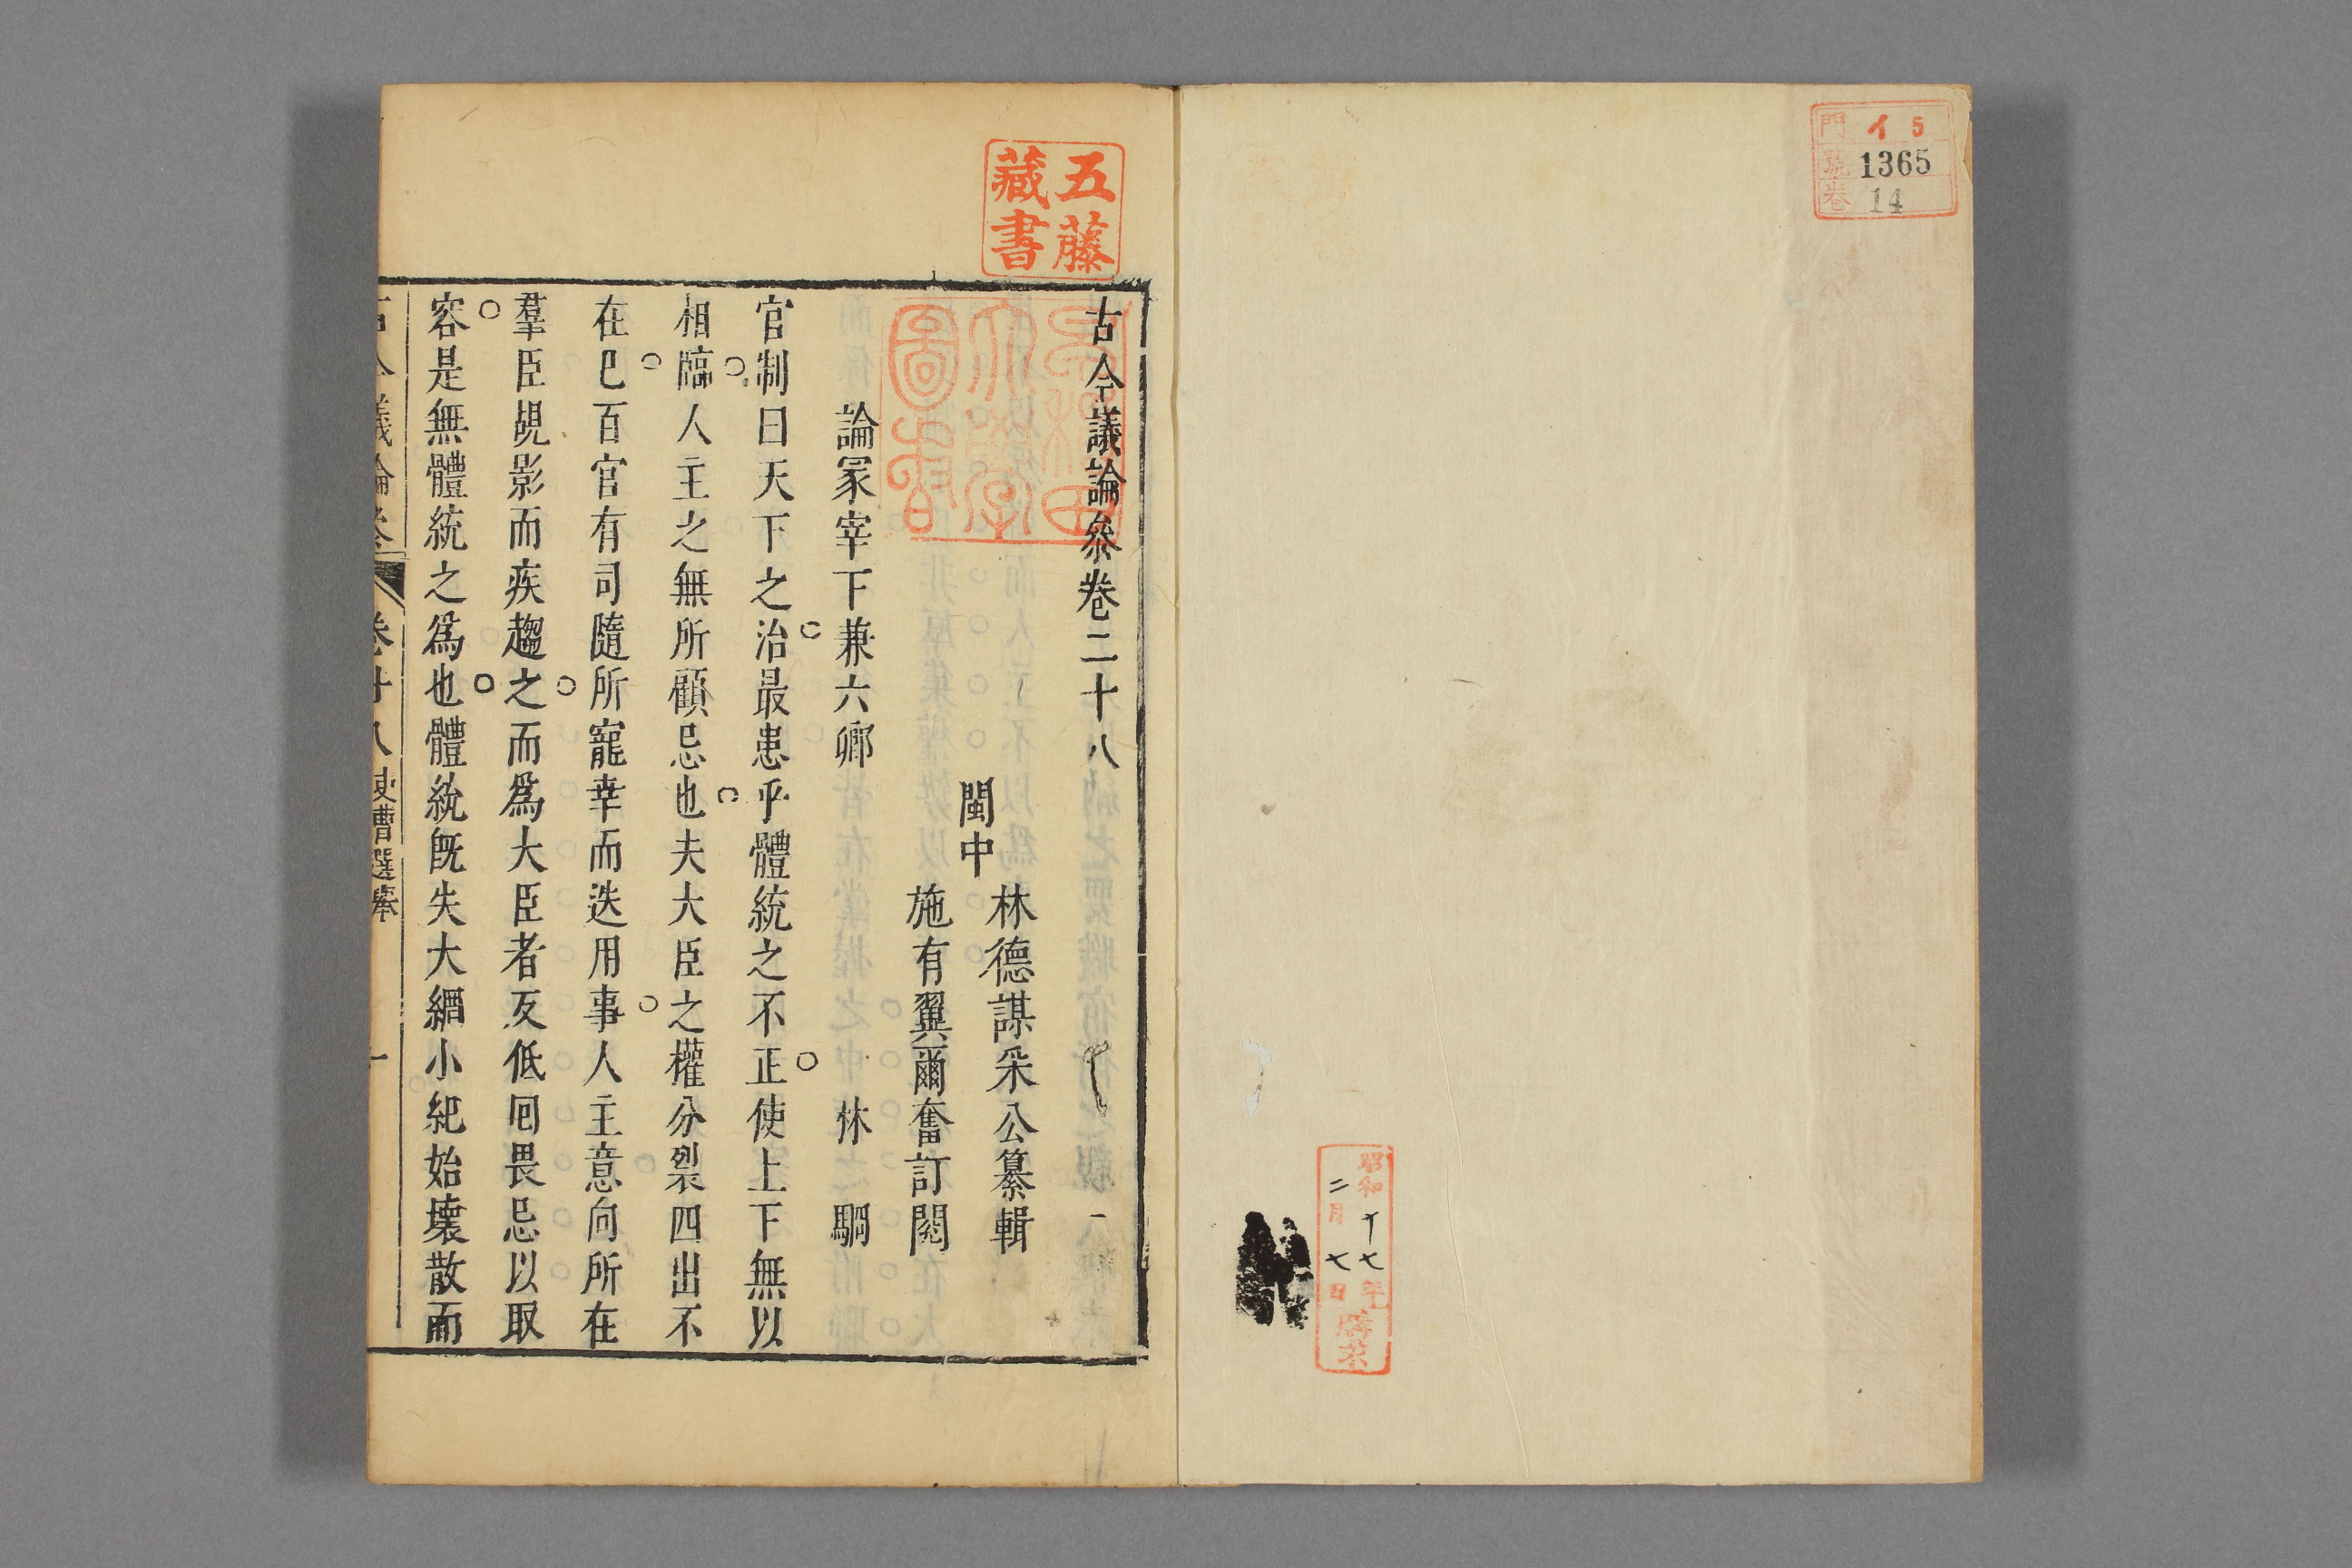 門 イ 5
號 1365
卷 14
昭和十七年
二月七日
購求
五藤
藏書
早稻田
大學
圖書
古今議論叅卷二十八
閩中
林德謀采公纂輯
施有翼爾奮訂閱
論冢宰下兼六卿 林駉
官制曰天下之治最患乎體統之不正使上下無以
相臨人主之無所顧忌也夫大臣之權分裂四出不
在巳百官有司隨所寵幸而迭用事人主意向所在
羣臣覘影而疾趨之而爲大臣者反低回畏忌以取
容是無體統之爲也體統旣失大綱小紀始壞散而
古今議論叅 卷廿八 吏曹選舉 一